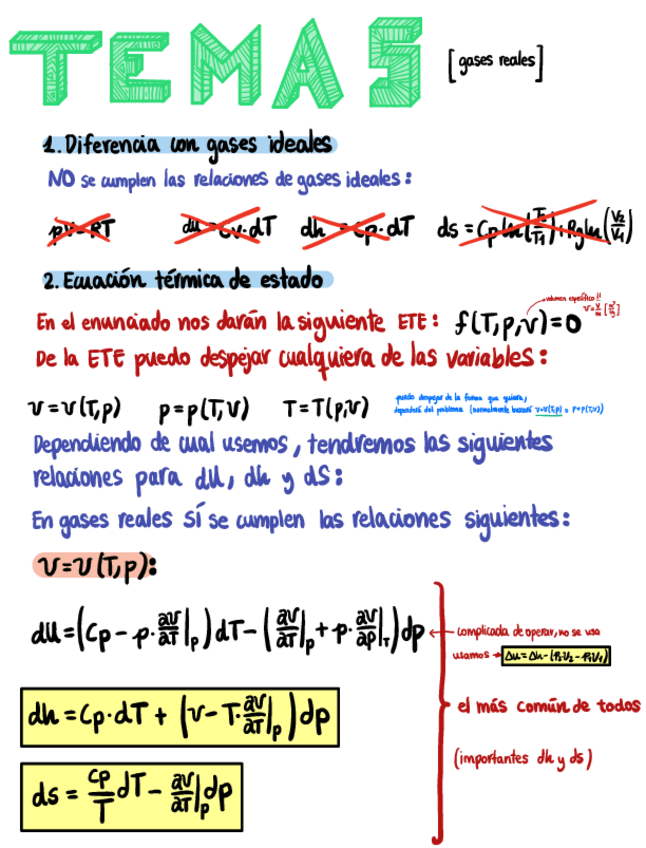 TEMA 5 [gases reales]
1. Diferencia con gases ideales
NO se cumplen las relaciones de gases ideales:
pv = RT   du = cv · dT   dh = cp · dT   ds = Cp ln(T2/T1) + Rg ln(V2/V1)
2. Ecuación térmica de estado
volumen específico!!
En el enunciado nos darán la siguiente ETE: f(T,p,v)=0
De la ETE puedo despejar cualquiera de las variables:
v=v(T,p)   p=p(T,v)   T=T(p,v)
puedo despejar de la forma que quiera,
dependerá del problema (normalmente buscaré v=v(T,p) o p=p(T,v))
Dependiendo de cual usemos, tendremos las siguientes
relaciones para dU, dh y dS:
En gases reales SÍ se cumplen las relaciones siguientes:
v=v(T,p):
du = (Cp − p · ∂v/∂T|p) dT − (∂v/∂T|p + p · ∂v/∂p|T) dp
← complicada de operar, no se usa
usamos → Δu = Δh − (P2V2 − P1V1)
dh = Cp · dT + (v − T · ∂v/∂T|p) dp
el más común de todos
(importantes dh y ds)
ds = cp/T dT − ∂v/∂T|p dp